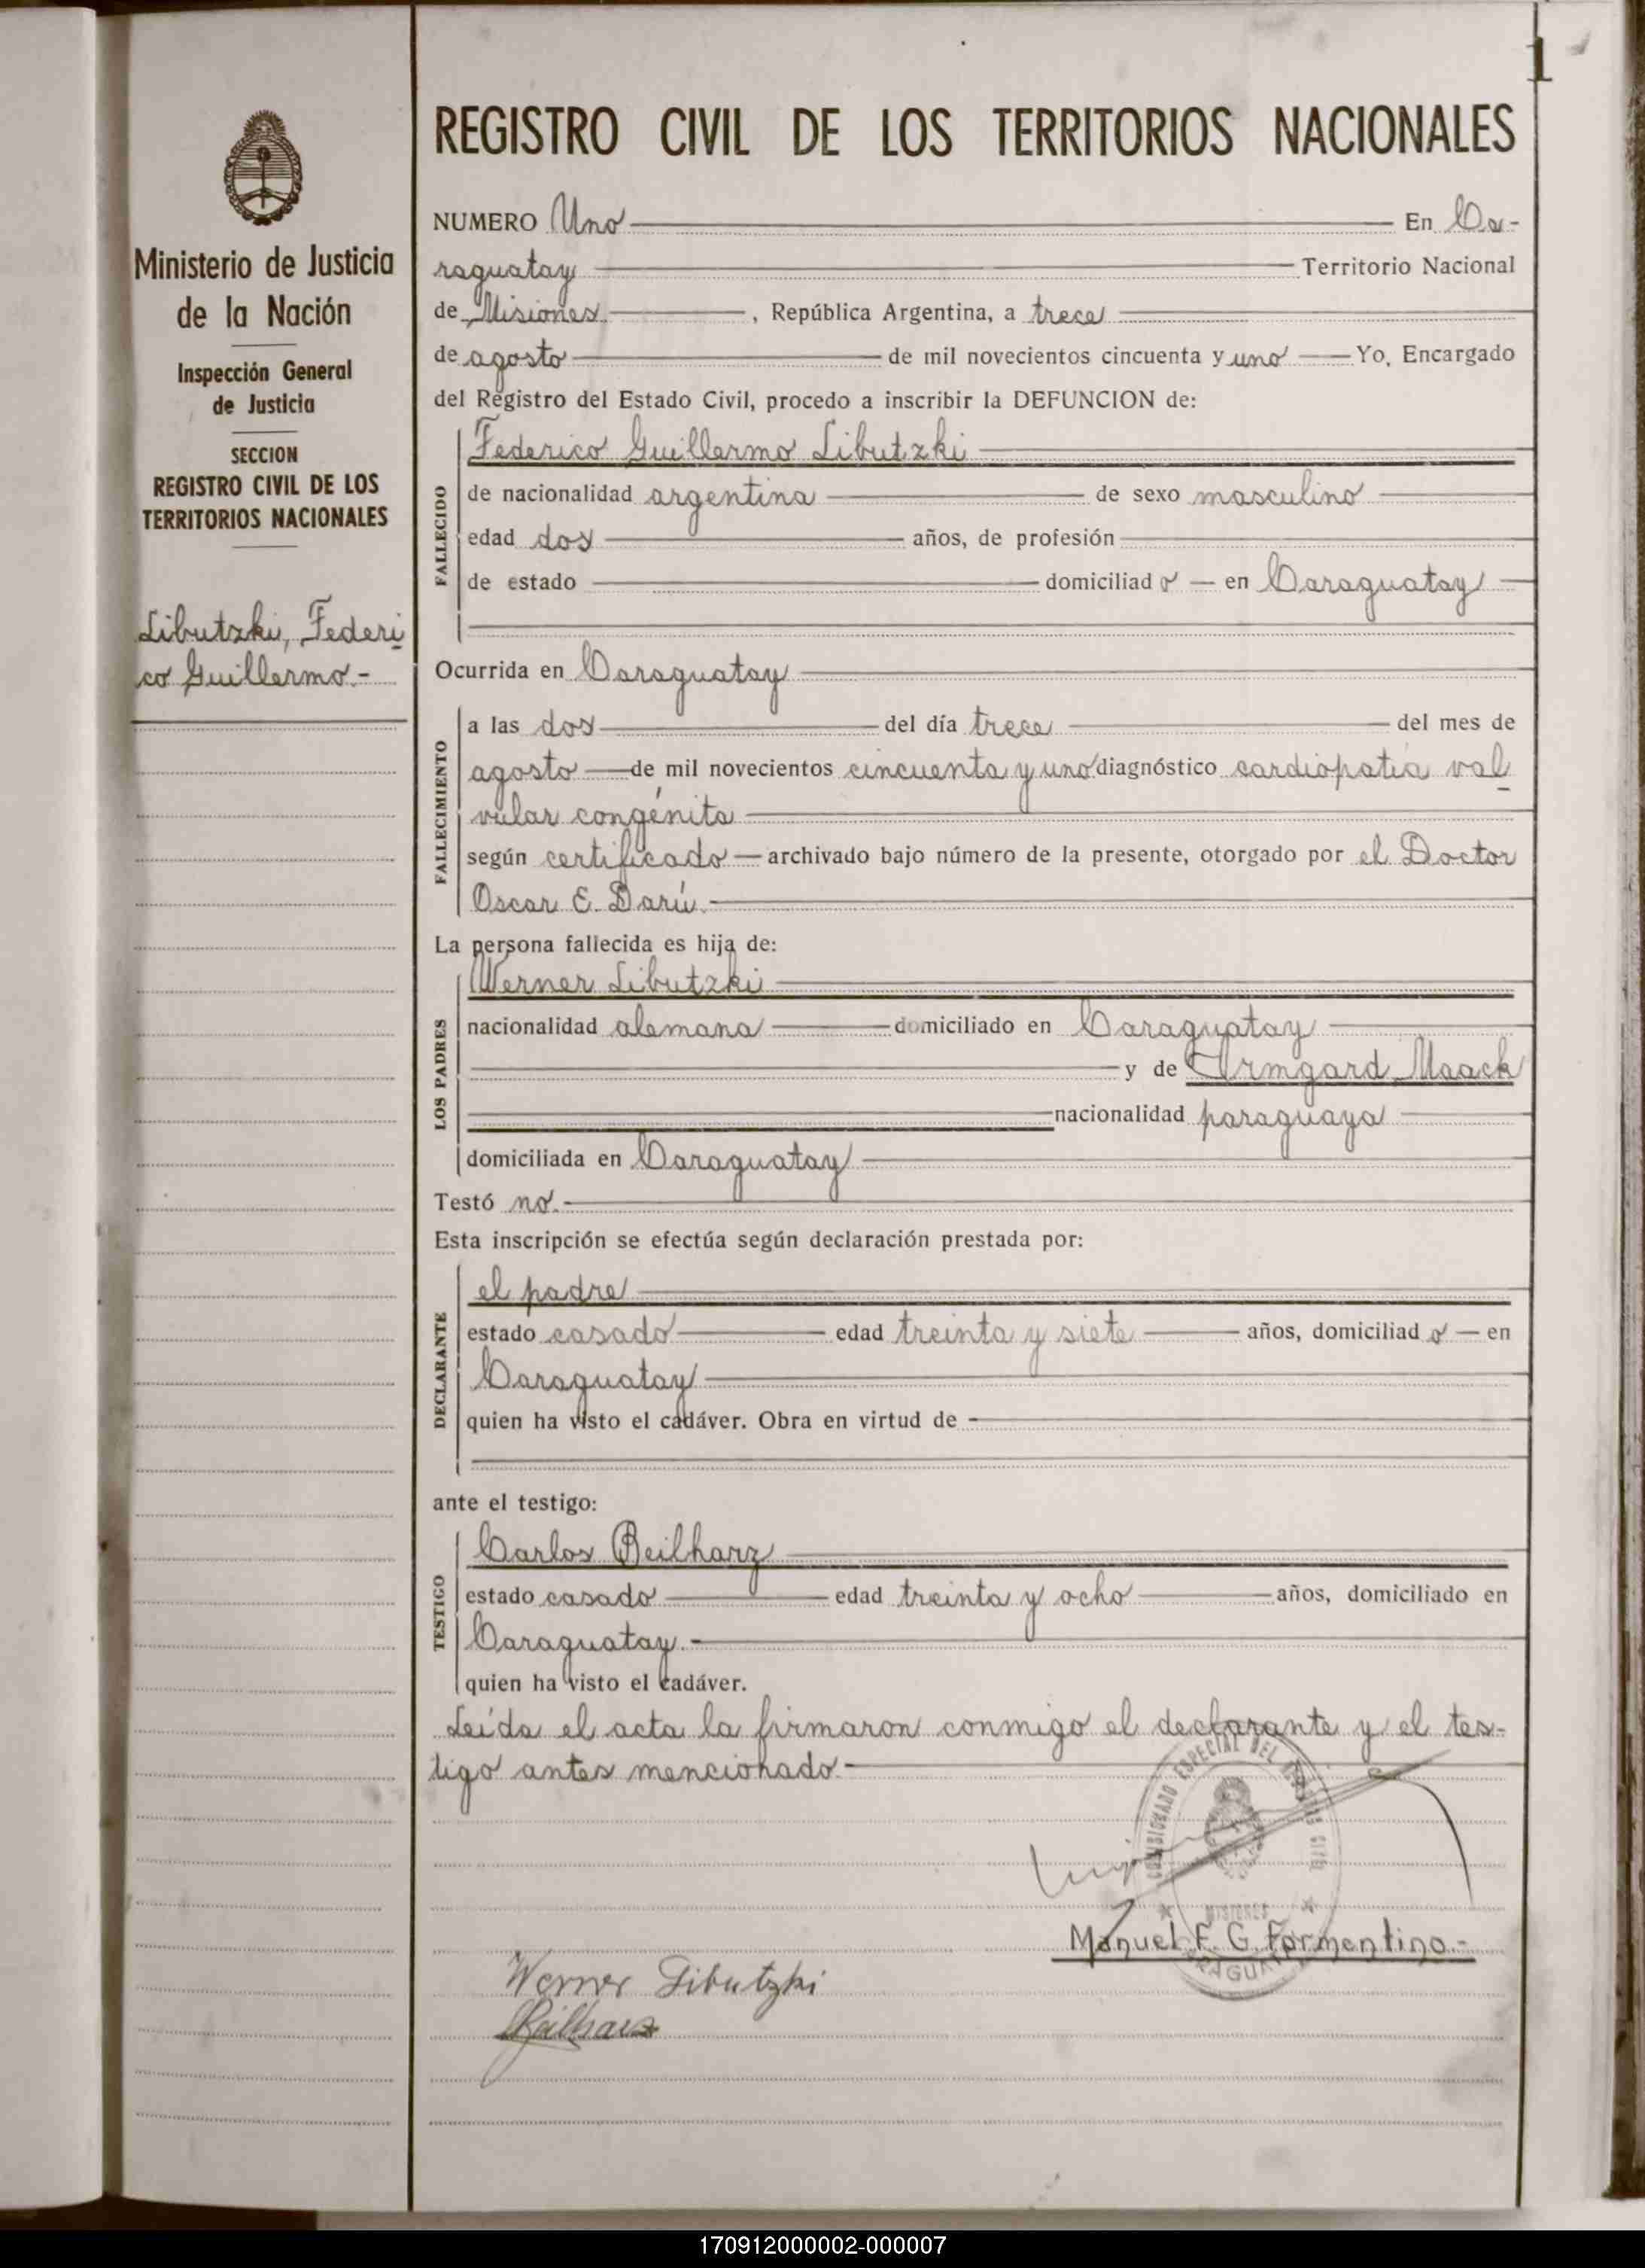 1
Ministerio de Justicia
de la Nación
Inspección General
de Justicia
SECCION
REGISTRO CIVIL DE LOS
TERRITORIOS NACIONALES
Libutzki, Federi
co Guillermo.-
REGISTRO CIVIL DE LOS TERRITORIOS NACIONALES
NUMERO Uno En Ca-
raguatay Territorio Nacional
de Misiones, República Argentina, a trece
de agosto de mil novecientos cincuenta y uno Yo, Encargado
del Registro del Estado Civil, procedo a inscribir la DEFUNCION de:
FALLECIDO
Federico Guillermo Libutzki
de nacionalidad argentina de sexo masculino
edad dos años, de profesión
de estado domiciliado en Caraguatay
Ocurrida en Caraguatay
FALLECIMIENTO
a las dos del día trece del mes de
agosto de mil novecientos cincuenta y uno diagnóstico cardiopatía val
vular congénita
según certificado archivado bajo número de la presente, otorgado por el Doctor
Oscar E. Darú.
La persona fallecida es hija de:
LOS PADRES
Werner Libutzki
nacionalidad alemana domiciliado en Caraguatay
y de Irmgard Maack
nacionalidad paraguaya
domiciliada en Caraguatay
Testó no.
Esta inscripción se efectúa según declaración prestada por:
DECLARANTE
el padre
estado casado edad treinta y siete años, domiciliado en
Caraguatay
quien ha visto el cadáver. Obra en virtud de
ante el testigo:
TESTIGO
Carlos Beilharz
estado casado edad treinta y ocho años, domiciliado en
Caraguatay.
quien ha visto el cadáver.
Leída el acta la firmaron conmigo el declarante y el tes-
tigo antes mencionado.-
COMISIONADO ESPECIAL DEL CIVIL
MISIONES
Manuel F. G. Formentino.-
Werner Libutzki
Beilharz
170912000002-000007